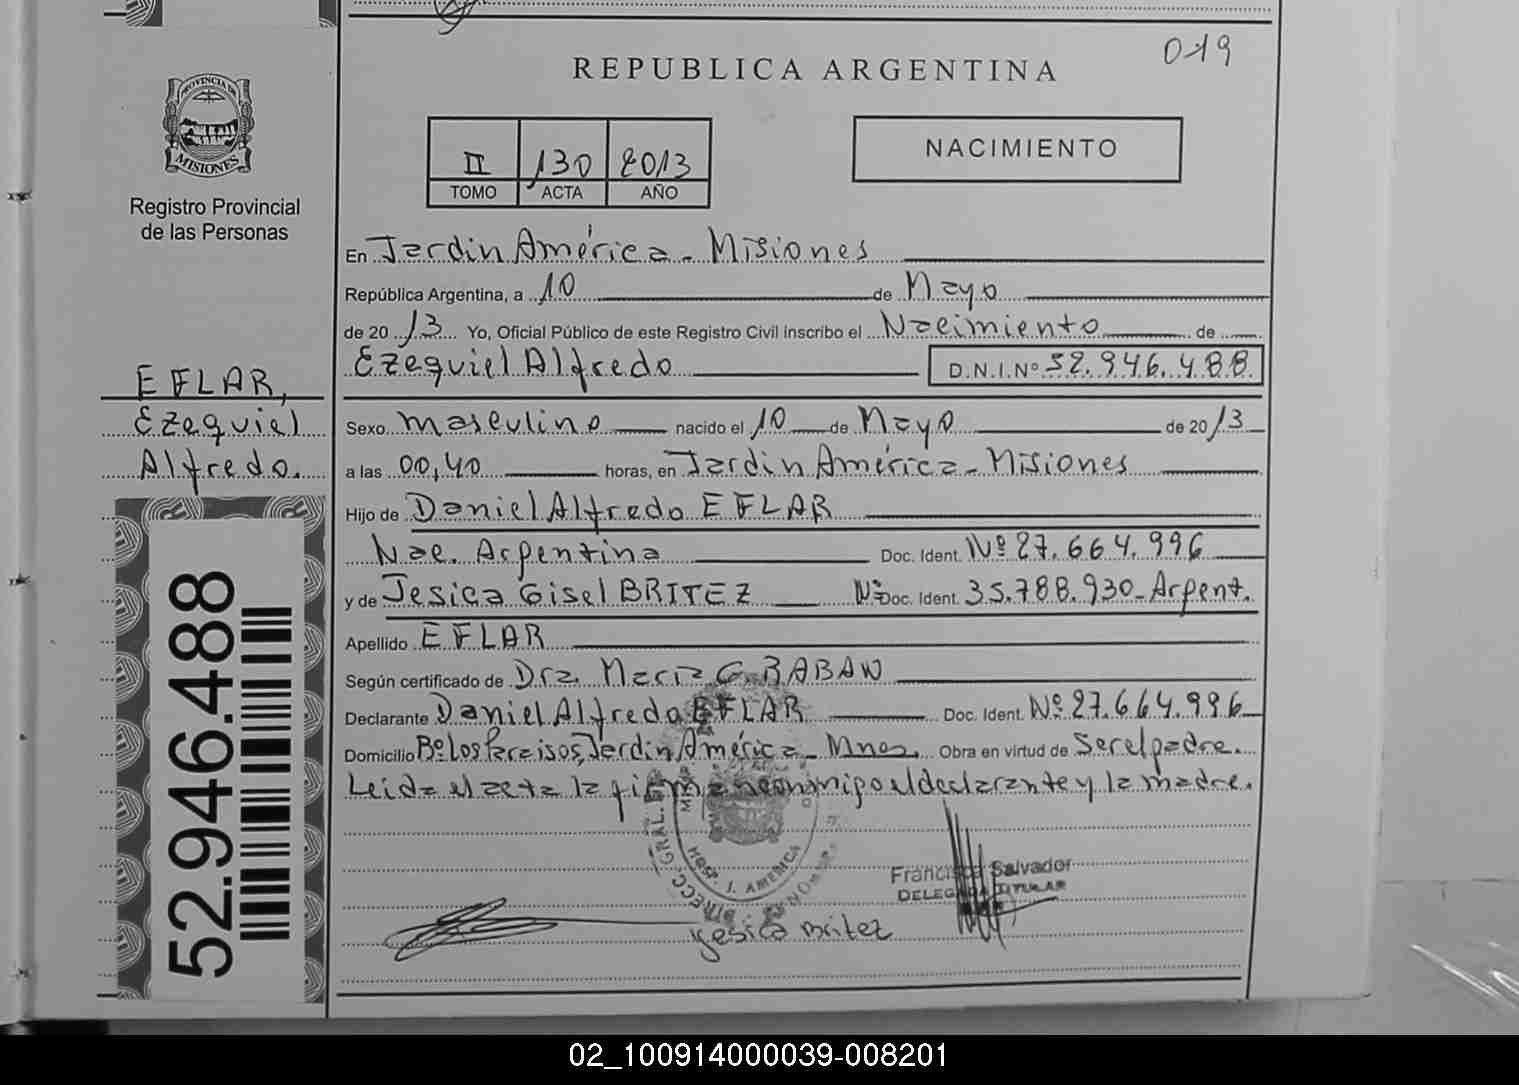 019
REPUBLICA ARGENTINA
PROVINCIA DE
MISIONES
Registro Provincial
de las Personas
II 130 2013
TOMO ACTA AÑO
NACIMIENTO
En Jardin América - Misiones
República Argentina, a 10 de Mayo
de 2013 Yo, Oficial Público de este Registro Civil inscribo el Nacimiento de
Ezequiel Alfredo D.N.I.Nº 52.946.488
EFLAR,
Ezequiel
Alfredo.
Sexo masculino nacido el 10 de Mayo de 2013
a las 00,40 horas, en Jardin América - Misiones
Hijo de Daniel Alfredo EFLAR
Nac. Argentina Doc. Ident. Nº 27.664.996
y de Jesica Gisel BRITEZ Nº Doc. Ident. 35.788.930 - Argent.
Apellido EFLAR
Según certificado de Dra. Maria G. BABAN
Declarante Daniel Alfredo EFLAR Doc. Ident. Nº 27.664.996
Domicilio Bº Los Paraisos, Jardin América - Mnes. Obra en virtud de Ser el padre.
Leida el acta la firman conmigo el declarante y la madre.
HOSP. J. AMERICA
Francisca Salvador
DELEGADA TITULAR
Jesica Britez
52.946.488
02_100914000039-008201